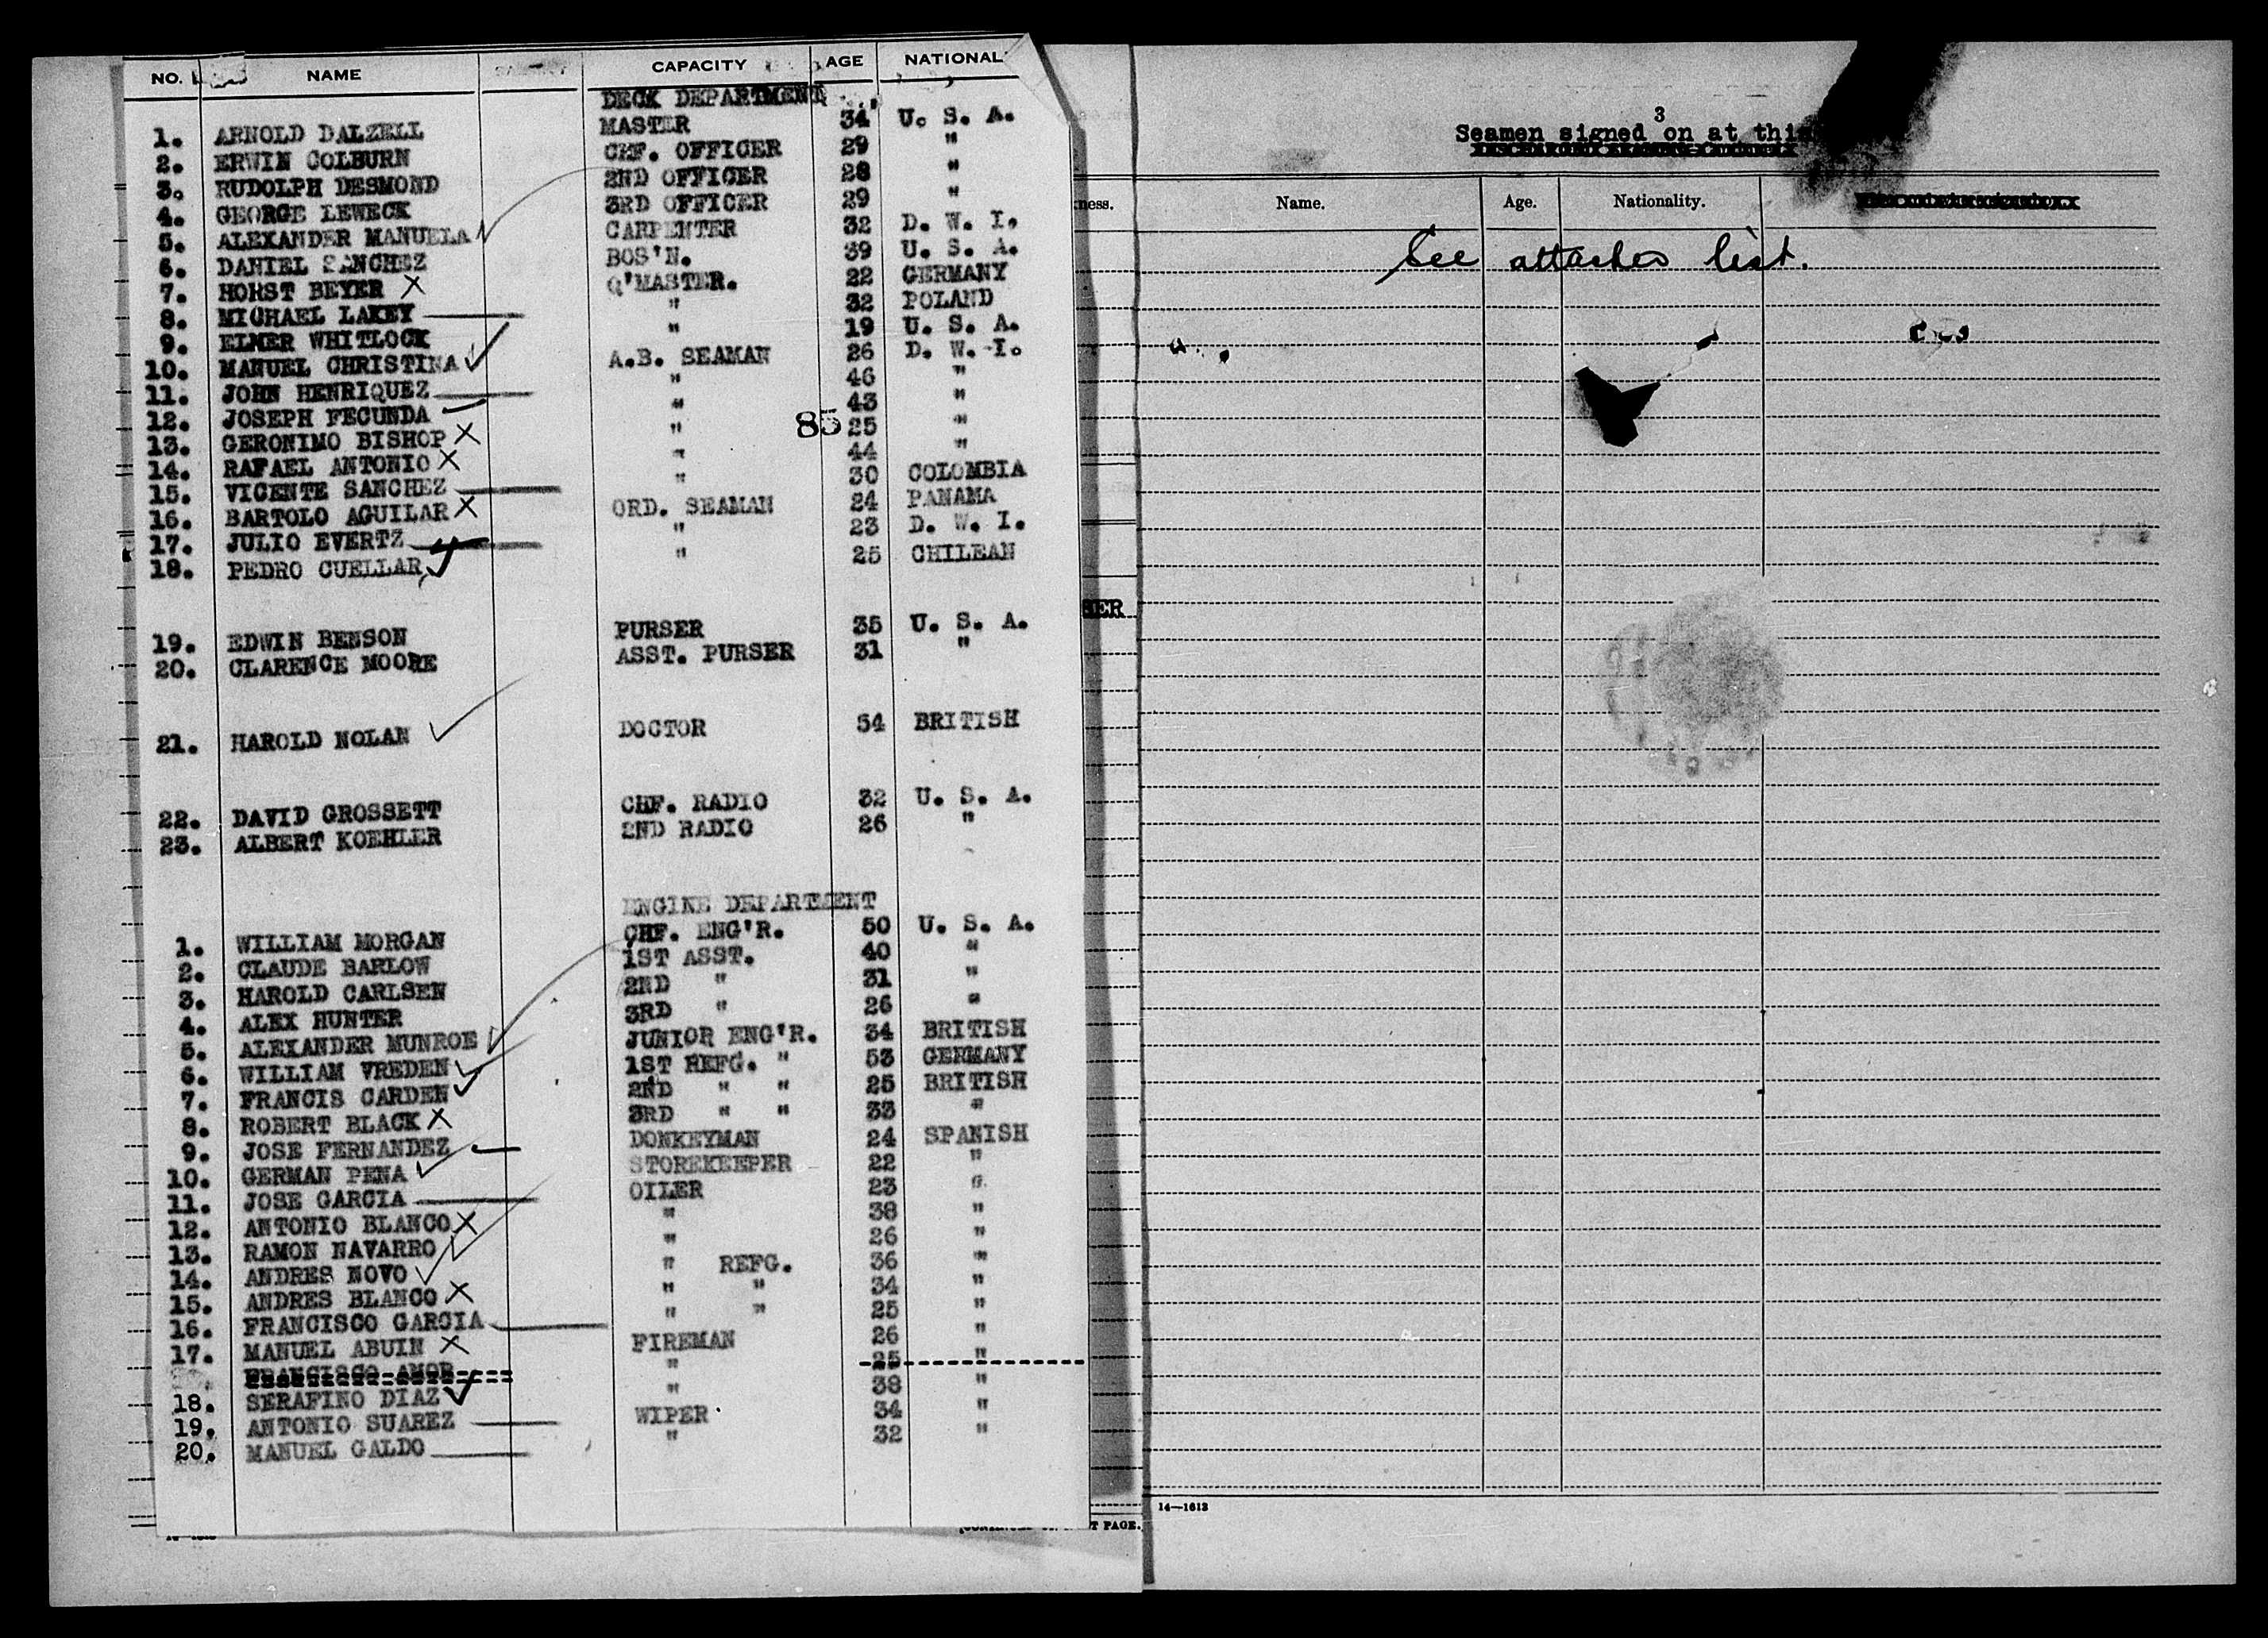 NO. NAME CAPACITY AGE NATIONAL
DECK DEPARTMENT
1. ARNOLD DALZELL MASTER 34 U. S. A.
2. ERWIN COLBURN CHF. OFFICER 29 "
3. RUDOLPH DESMOND 2ND OFFICER 28 "
4. GEORGE LEWECK 3RD OFFICER 29 "
5. ALEXANDER MANUELA CARPENTER 32 D. W. I.
6. DANIEL SANCHEZ BOS'N. 39 U. S. A.
7. HORST BEYER X Q'MASTER. 22 GERMANY
8. MICHAEL LAKEY " 32 POLAND
9. ELMER WHITLOCK " 19 U. S. A.
10. MANUEL CHRISTINA A.B. SEAMAN 26 D. W. I.
11. JOHN HENRIQUEZ " 46 "
12. JOSEPH FECUNDA " 43 "
13. GERONIMO BISHOP X " 85 25 "
14. RAFAEL ANTONIO X " 44 "
15. VICENTE SANCHEZ " 30 COLOMBIA
16. BARTOLO AGUILAR X ORD. SEAMAN 24 PANAMA
17. JULIO EVERTZ " 23 D. W. I.
18. PEDRO CUELLAR " 25 CHILEAN
19. EDWIN BENSON PURSER 35 U. S. A.
20. CLARENCE MOORE ASST. PURSER 31 "
21. HAROLD NOLAN DOCTOR 54 BRITISH
22. DAVID GROSSETT CHF. RADIO 32 U. S. A.
23. ALBERT KOEHLER 2ND RADIO 26 "
ENGINE DEPARTMENT
1. WILLIAM MORGAN CHF. ENG'R. 50 U. S. A.
2. CLAUDE BARLOW 1ST ASST. 40 "
3. HAROLD CARLSEN 2ND " 31 "
4. ALEX HUNTER 3RD " 26 "
5. ALEXANDER MUNROE JUNIOR ENG'R. 34 BRITISH
6. WILLIAM VREDEN 1ST REFG. " 53 GERMANY
7. FRANCIS CARDEN 2ND " " 25 BRITISH
8. ROBERT BLACK X 3RD " " 33 "
9. JOSE FERNANDEZ DONKEYMAN 24 SPANISH
10. GERMAN PENA STOREKEEPER 22 "
11. JOSE GARCIA OILER 23 "
12. ANTONIO BLANCO X " 38 "
13. RAMON NAVARRO " 26 "
14. ANDRES NOVO " REFG. 36 "
15. ANDRES BLANCO X " " 34 "
16. FRANCISCO GARCIA " " 25 "
17. MANUEL ABUIN X FIREMAN 26 "
FRANCISCO AMOR " 25 "
18. SERAFINO DIAZ " 38 "
19. ANTONIO SUAREZ WIPER 34 "
20. MANUEL GALDO " 32 "
T PAGE.
3
Seamen signed on at this
Name. Age. Nationality.
See attached list.
14—1613